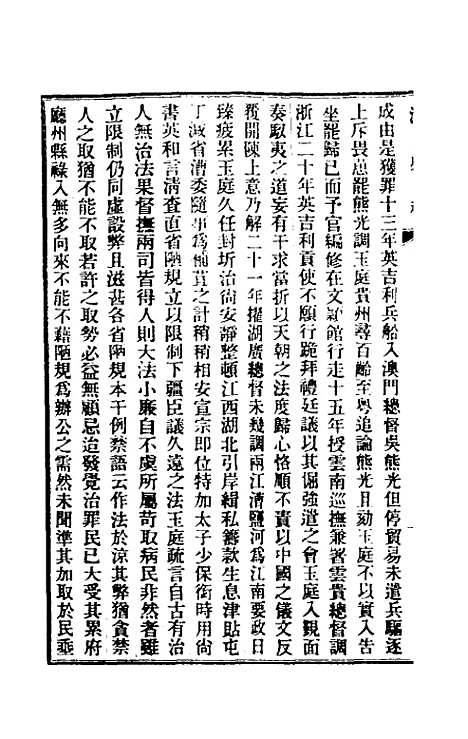 成由是獲罪十三年英吉利兵船入澳門總督吳熊光但停貿易未遣兵驅逐
上斥畏葸罷熊光調玉庭貴州尋百齡至粵追論熊光且劾玉庭不以實入告
坐罷歸已而予官編修在文穎館行走十五年授雲南巡撫兼署雲貴總督調
浙江二十年英吉利貢使不願行跪拜禮廷議以其倔強遣之會玉庭入覲面
奏馭夷之道妄有干求當折以天朝之法度歸心恪順不責以中國之儀文反
覆開陳上意乃解二十一年擢湖廣總督未幾調兩江漕鹽河為江南要政日
臻疲累玉庭久任封圻治尚安靜整頓江西湖北引岸緝私籌款生息津貼屯
丁減省漕委隨事為補苴之計稍稍相安宣宗即位特加太子少保銜時用尚
書英和言清查直省陋規立以限制下疆臣議久遠之法玉庭疏言自古有治
人無治法果督撫兩司皆得人則大法小廉自不虞所屬苛取病民非然者雖
立限制仍同虛設弊且滋甚各省陋規本干例禁語云作法於涼其弊猶貪禁
人之取猶不能不取若許之取勢必益無顧忌迨發覺治罪民已大受其累府
廳州縣祿入無多向來不能不藉陋規為辦公之需然未聞準其加取於民乘